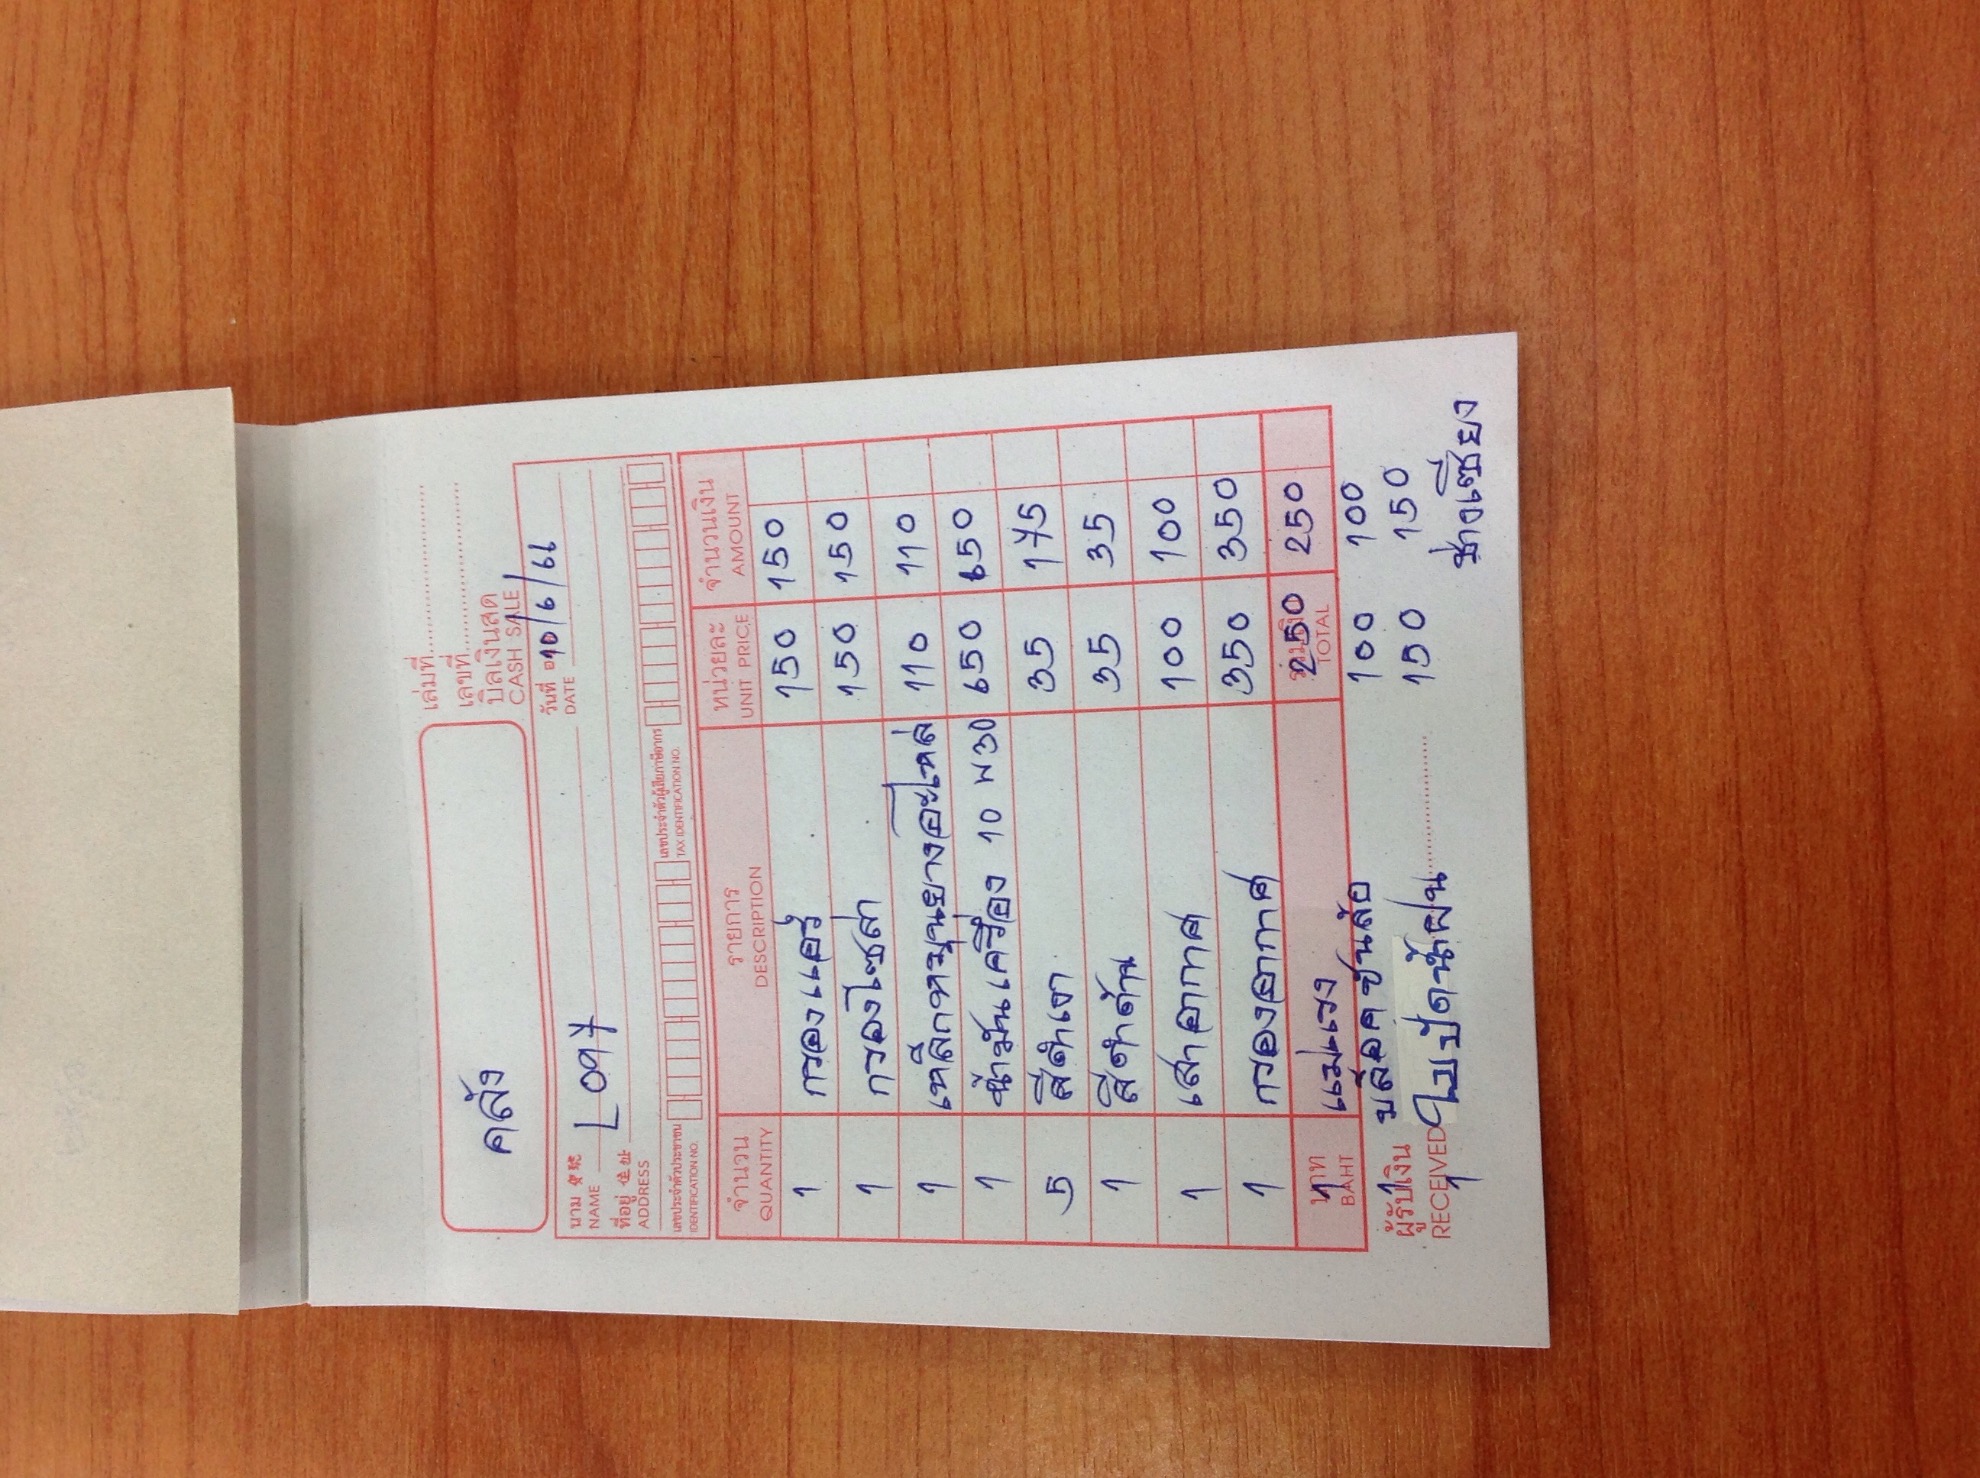 คลัง
เล่มที่
เลขที่
บิลเงินสด
CASH SALE
วันที่ 10/6/66
DATE
นาม
NAME L 097
ที่อยู่ 住址
ADDRESS
เลขประจำตัวประชาชน เลขประจำตัวผู้เสียภาษีอากร
IDENTIFICATION NO. TAX IDENTIFICATION NO.
จำนวน รายการ หน่วยละ จำนวนเงิน
QUANTITY DESCRIPTION UNIT PRICE AMOUNT
1 กรองแอร์ 150 150
1 กรองโซล่า 150 150
1 เหล็กหมุนยางอะไหล่ 110 110
1 น้ำมันเครื่อง 10 W30 650 650
5 สีดำเงา 35 175
1 สีดำด้าน 35 35
1 เสาอากาศ 100 100
1 กรองอากาศ 350 350
บาท รวมเงิน
BAHT TOTAL
1 แม่แรง 250 250
1 บล็อคขันล้อ 100 100
ผู้รับเงิน
RECEIVED
1 ใบปัดน้ำฝน 150 150
ช่างเซียง